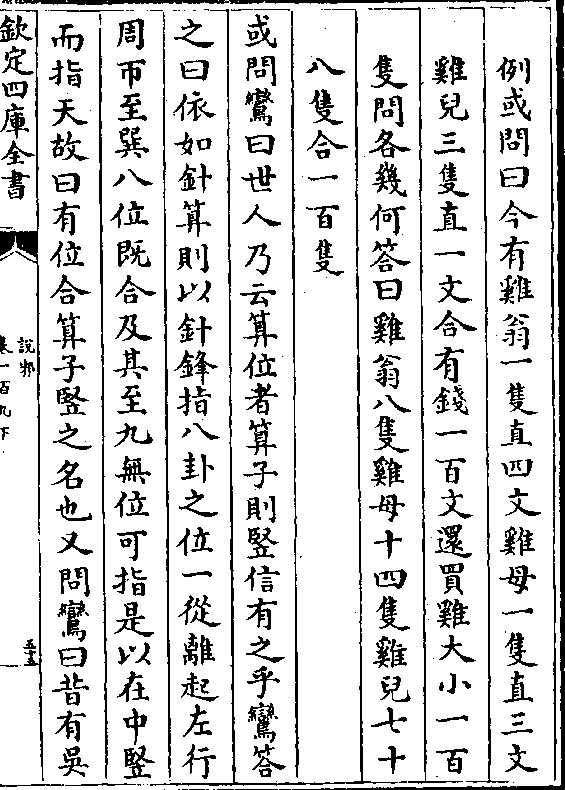 例或問曰今有雞翁一隻直四文雞母一隻直三文
雞兒三隻直一文合有錢一百文還買雞大小一百
隻問各幾何答曰雞翁八隻雞母十四隻雞兒七十
八隻合一百隻
或問鸞曰世人乃云算位者算子則豎信有之乎鸞答
之曰依如針算則以針鋒指八卦之位一從離起左行
周帀至巽八位既合及其至九無位可指是以在中豎
而指天故曰有位合算子豎之名也又問鸞曰昔有吳
欽定四庫全書
說郛
卷一百九下